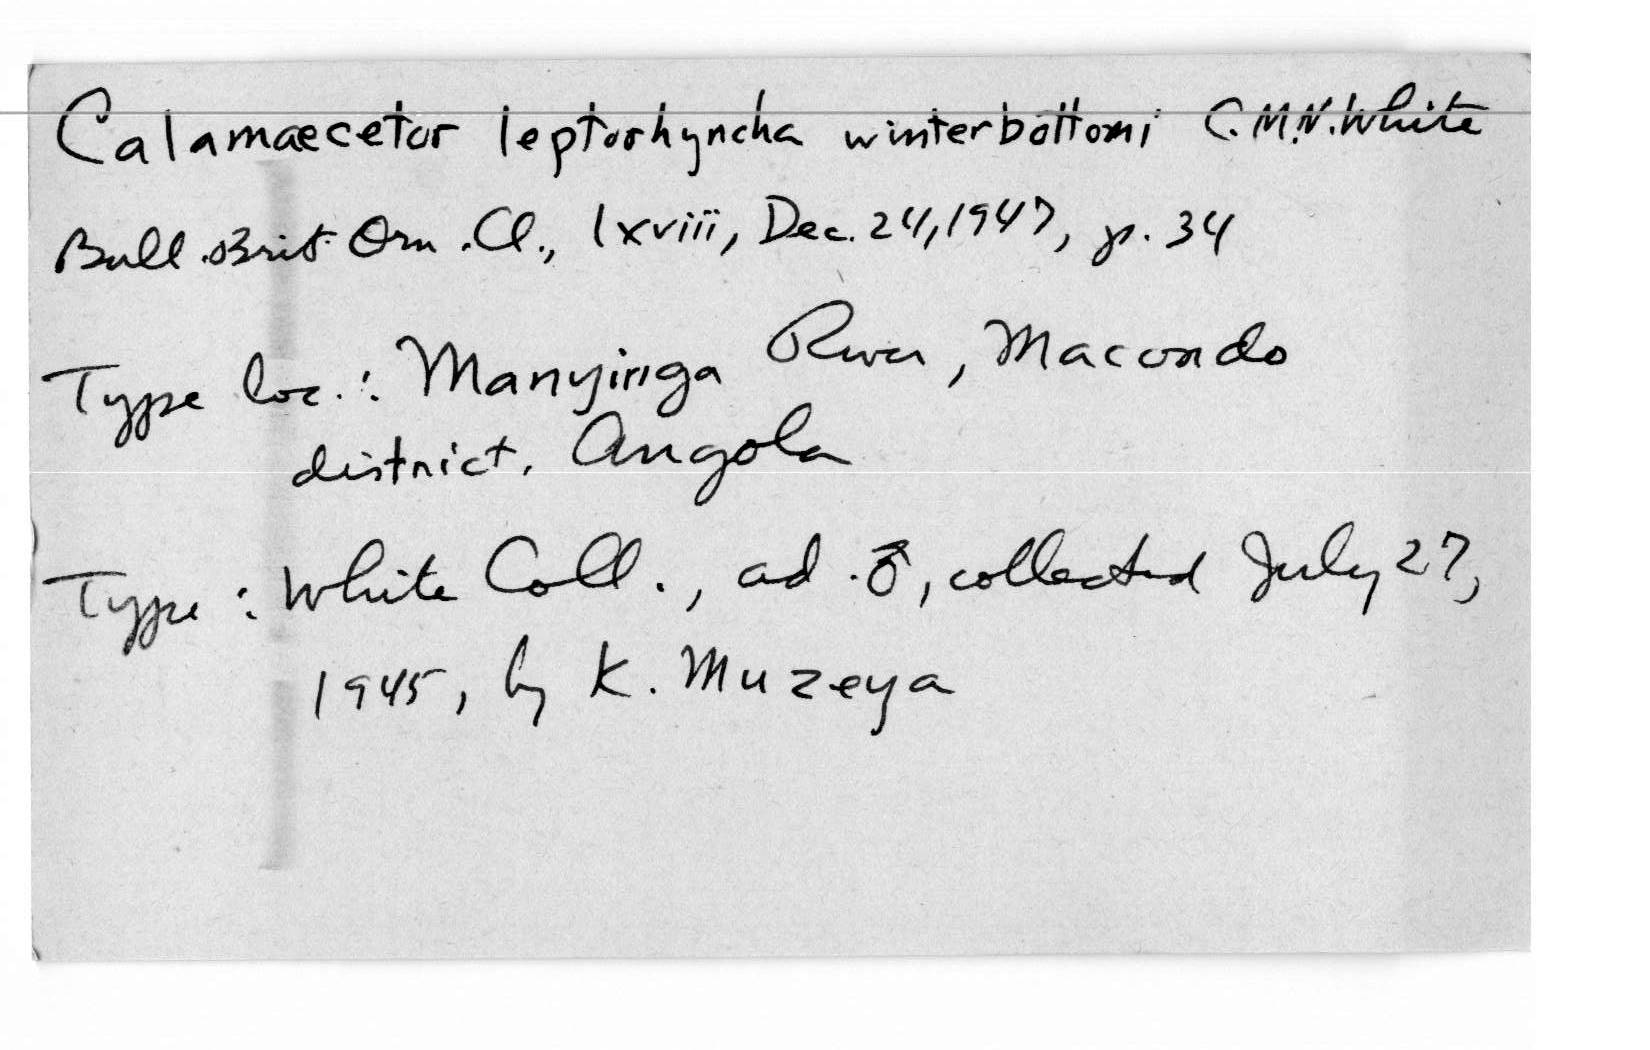 Calamaecetor leptorhyncha winterbottomi C.M.N. White
Bull. Brit. Orn. Cl., lxviii, Dec. 24, 1947, p. 34
Type loc.: Manyinga River, Macondo
district, Angola
Type: White Coll., ad. ♂, collected July 27,
1945, by K. Muzeya